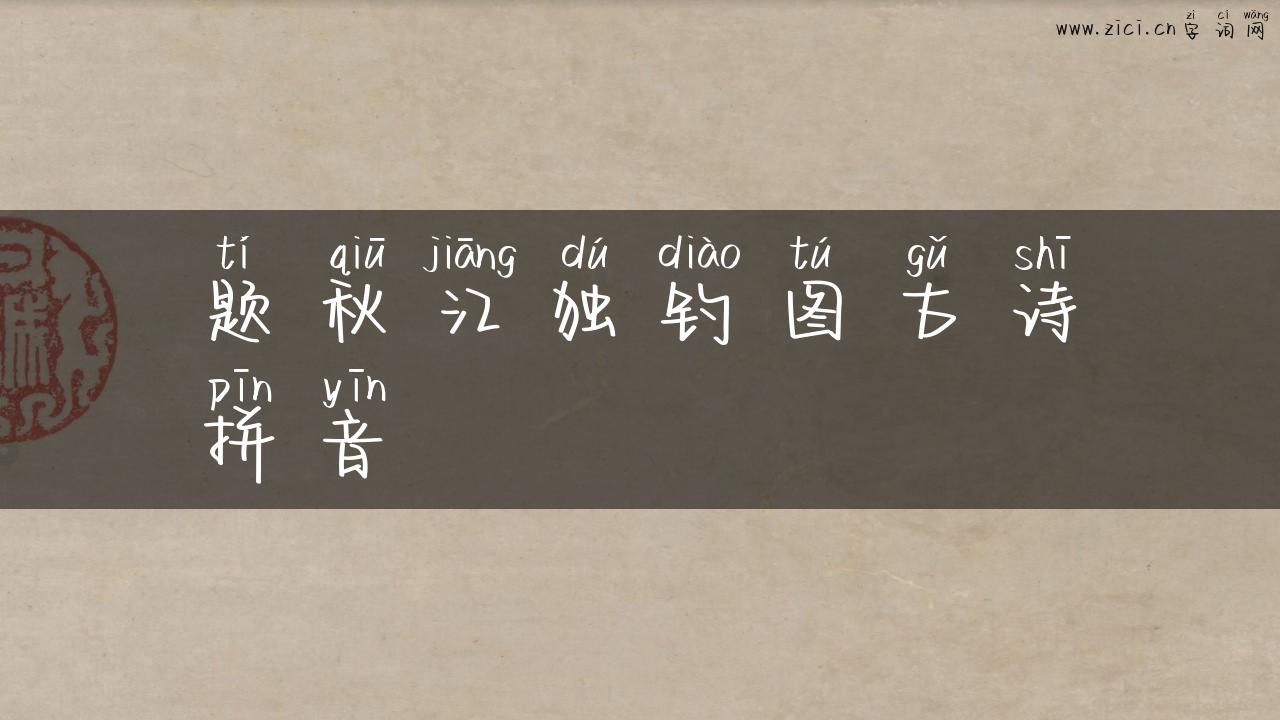 zì cí wǎng
www.zici.cn 字词网
tí qiū jiāng dú diào tú gǔ shī
题秋江独钓图古诗
pīn yīn
拼音